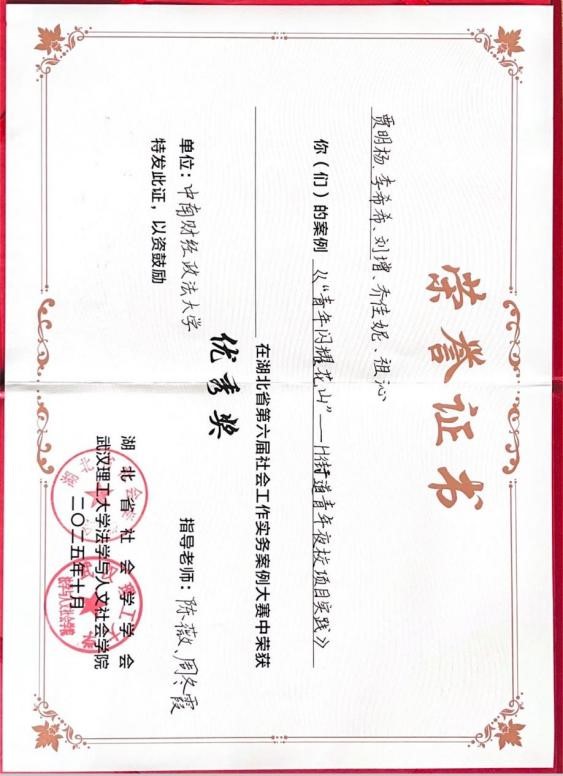 荣誉证书
贾明杨、李希希、刘增、乔佳妮、祖沁
你（们）的案例《“青年闪耀花山”——H街道青年夜校项目实践》
在湖北省第六届社会工作实务案例大赛中荣获
优秀奖
单位：中南财经政法大学
指导老师：陈薇、周冬霞
特发此证，以资鼓励
湖北省社会学学会
武汉理工大学法学与人文社会学院
二〇二五年十月